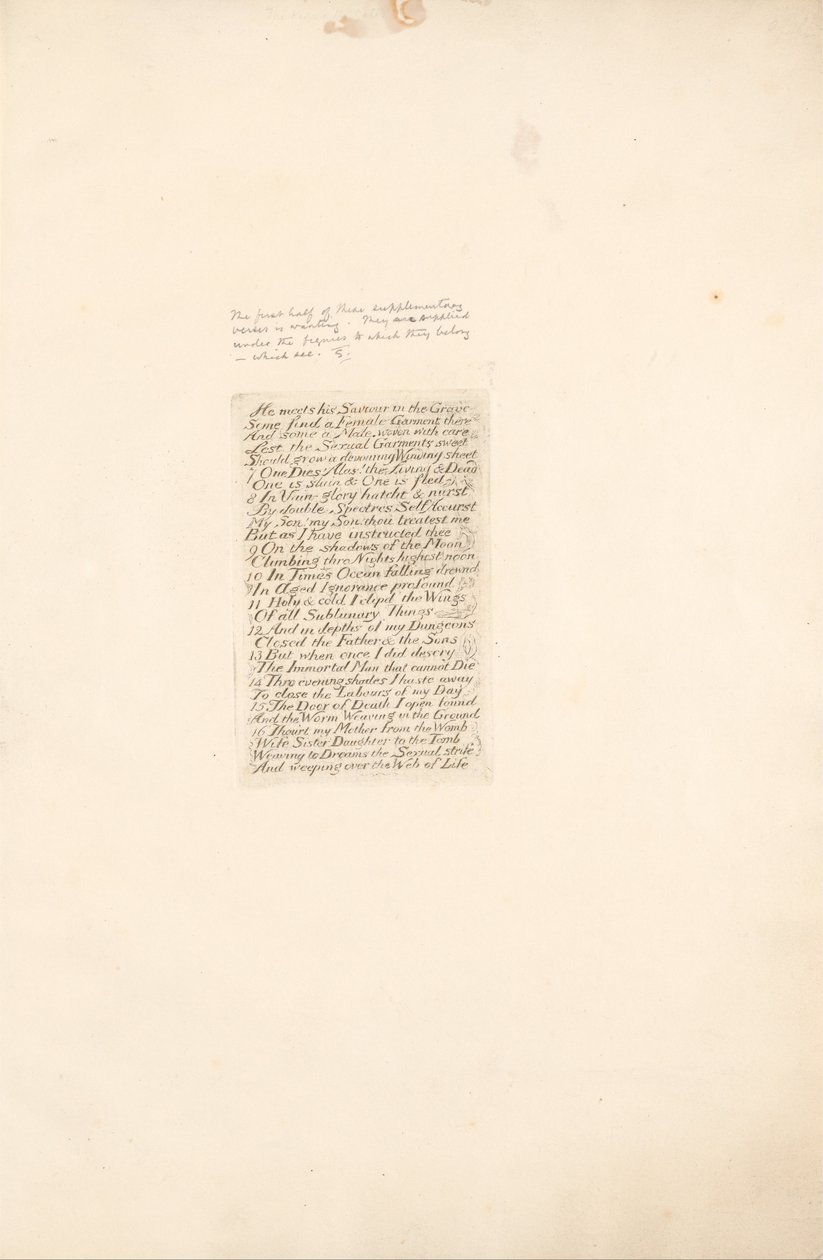 The first half of these supplementary
verses is wanting. They are supplied
under the figures to which they belong
— which see. S.
He meets his Saviour in the Grave
Some find a Female Garment there
And some a Male, woven with care
Lest the Sexual Garments sweet
Should grow a devouring Winding sheet
7 One Dies! Alas! the Living & Dead
One is slain & One is fled
8 In Vain-glory hatcht & nurst
By double Spectres Self Accurst
My Son! my Son! thou treatest me
But as I have instructed thee
9 On the shadows of the Moon
Climbing thro Nights highest noon
10 In Times Ocean falling drownd
In Aged Ignorance profound
11 Holy & cold I clipd the Wings
Of all Sublunary Things
12 And in depths of my Dungeons
Closed the Father & the Sons
13 But when once I did descry
The Immortal Man that cannot Die
14 Thro evening shades I haste away
To close the Labours of my Day
15 The Door of Death I open found
And the Worm Weaving in the Ground
16 Thou'rt my Mother from the Womb
Wife Sister Daughter to the Tomb
Weaving to Dreams the Sexual strife
And weeping over the Web of Life